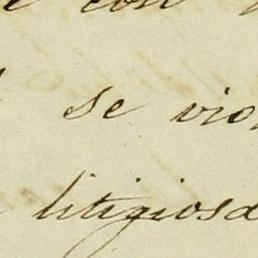 con
se vio
litigiosa